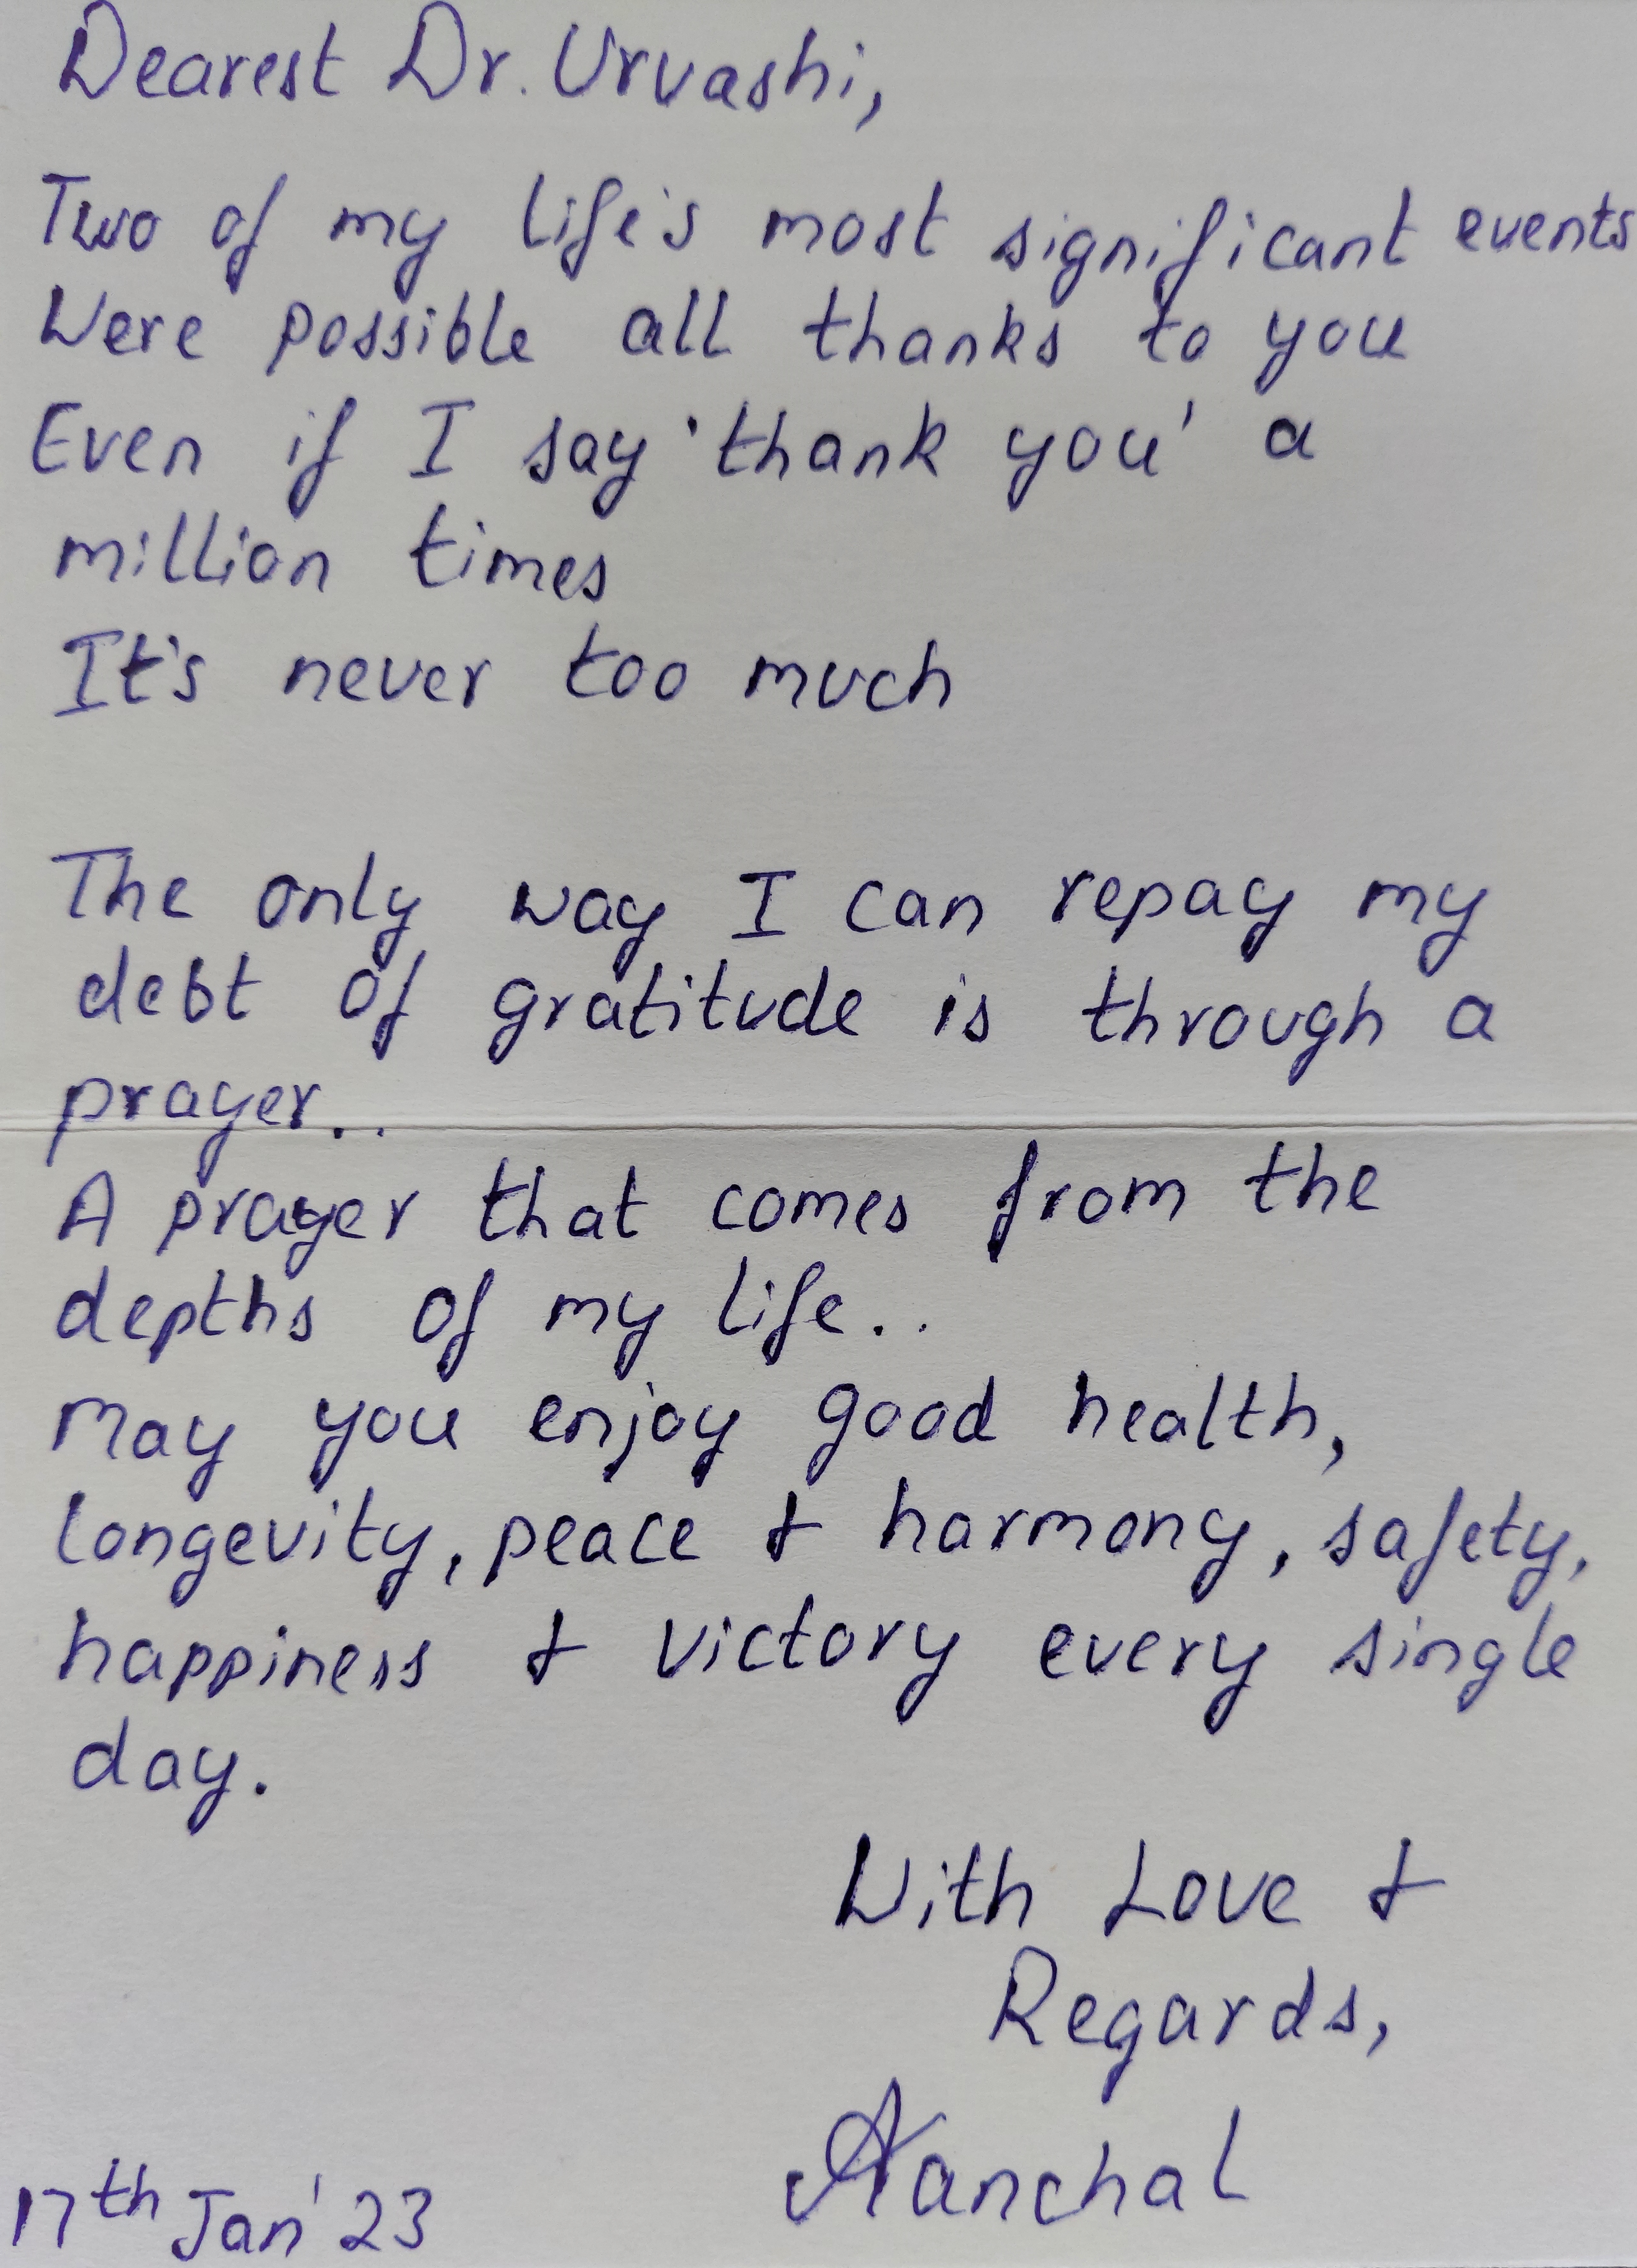 Dearest Dr. Urvashi,
Two of my life's most significant events
Were possible all thanks to you
Even if I say 'thank you' a
million times
It's never too much
The only way I can repay my
debt of gratitude is through a
prayer..
A prayer that comes from the
depths of my life..
May you enjoy good health,
longevity, peace & harmony, safety,
happiness & victory every single
day.
With Love &
Regards,
Aanchal
17th Jan' 23